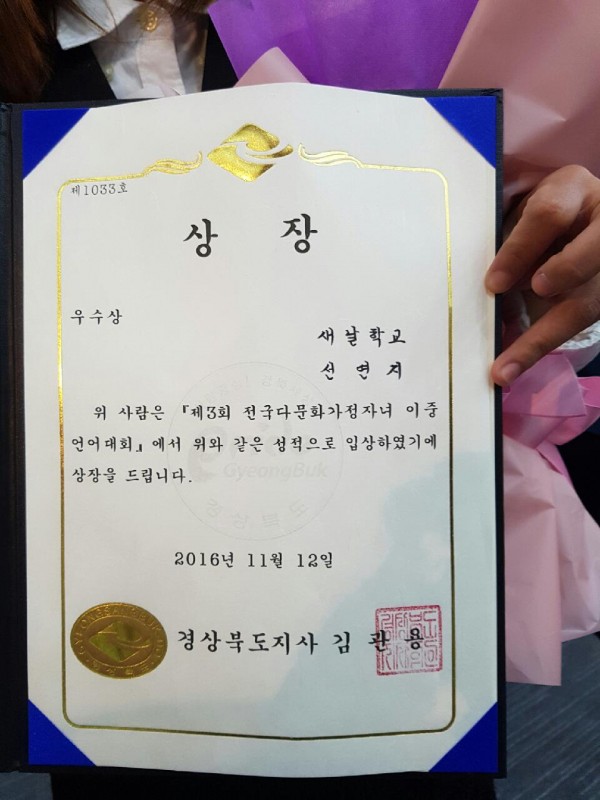 제1033호
상 장
우수상
새날학교
선 연 지
위 사람은 『제3회 전국다문화가정자녀 이중
언어대회』에서 위와 같은 성적으로 입상하였기에
상장을 드립니다.
GyeongBuk
경상북도
2016년 11월 12일
경상북도지사 김 관 용